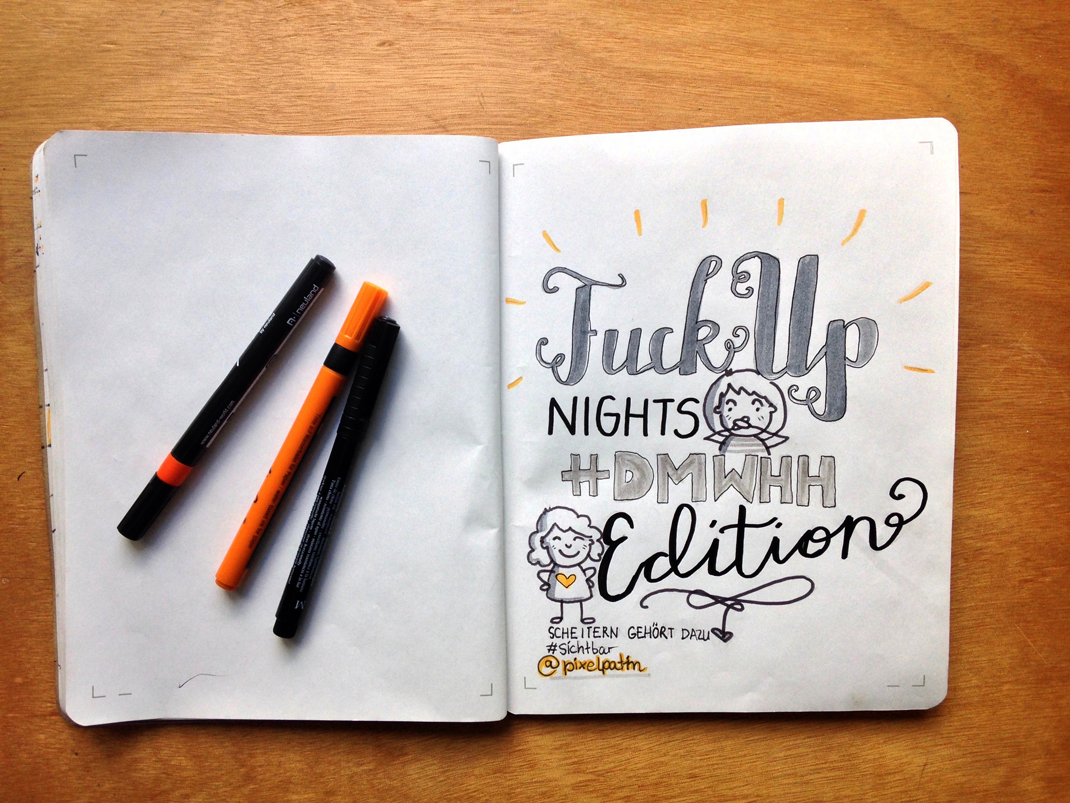 Fuck Up
NIGHTS
#DMWHH
Edition
SCHEITERN GEHÖRT DAZU
#Sichtbar
@pixelpatin
neuland